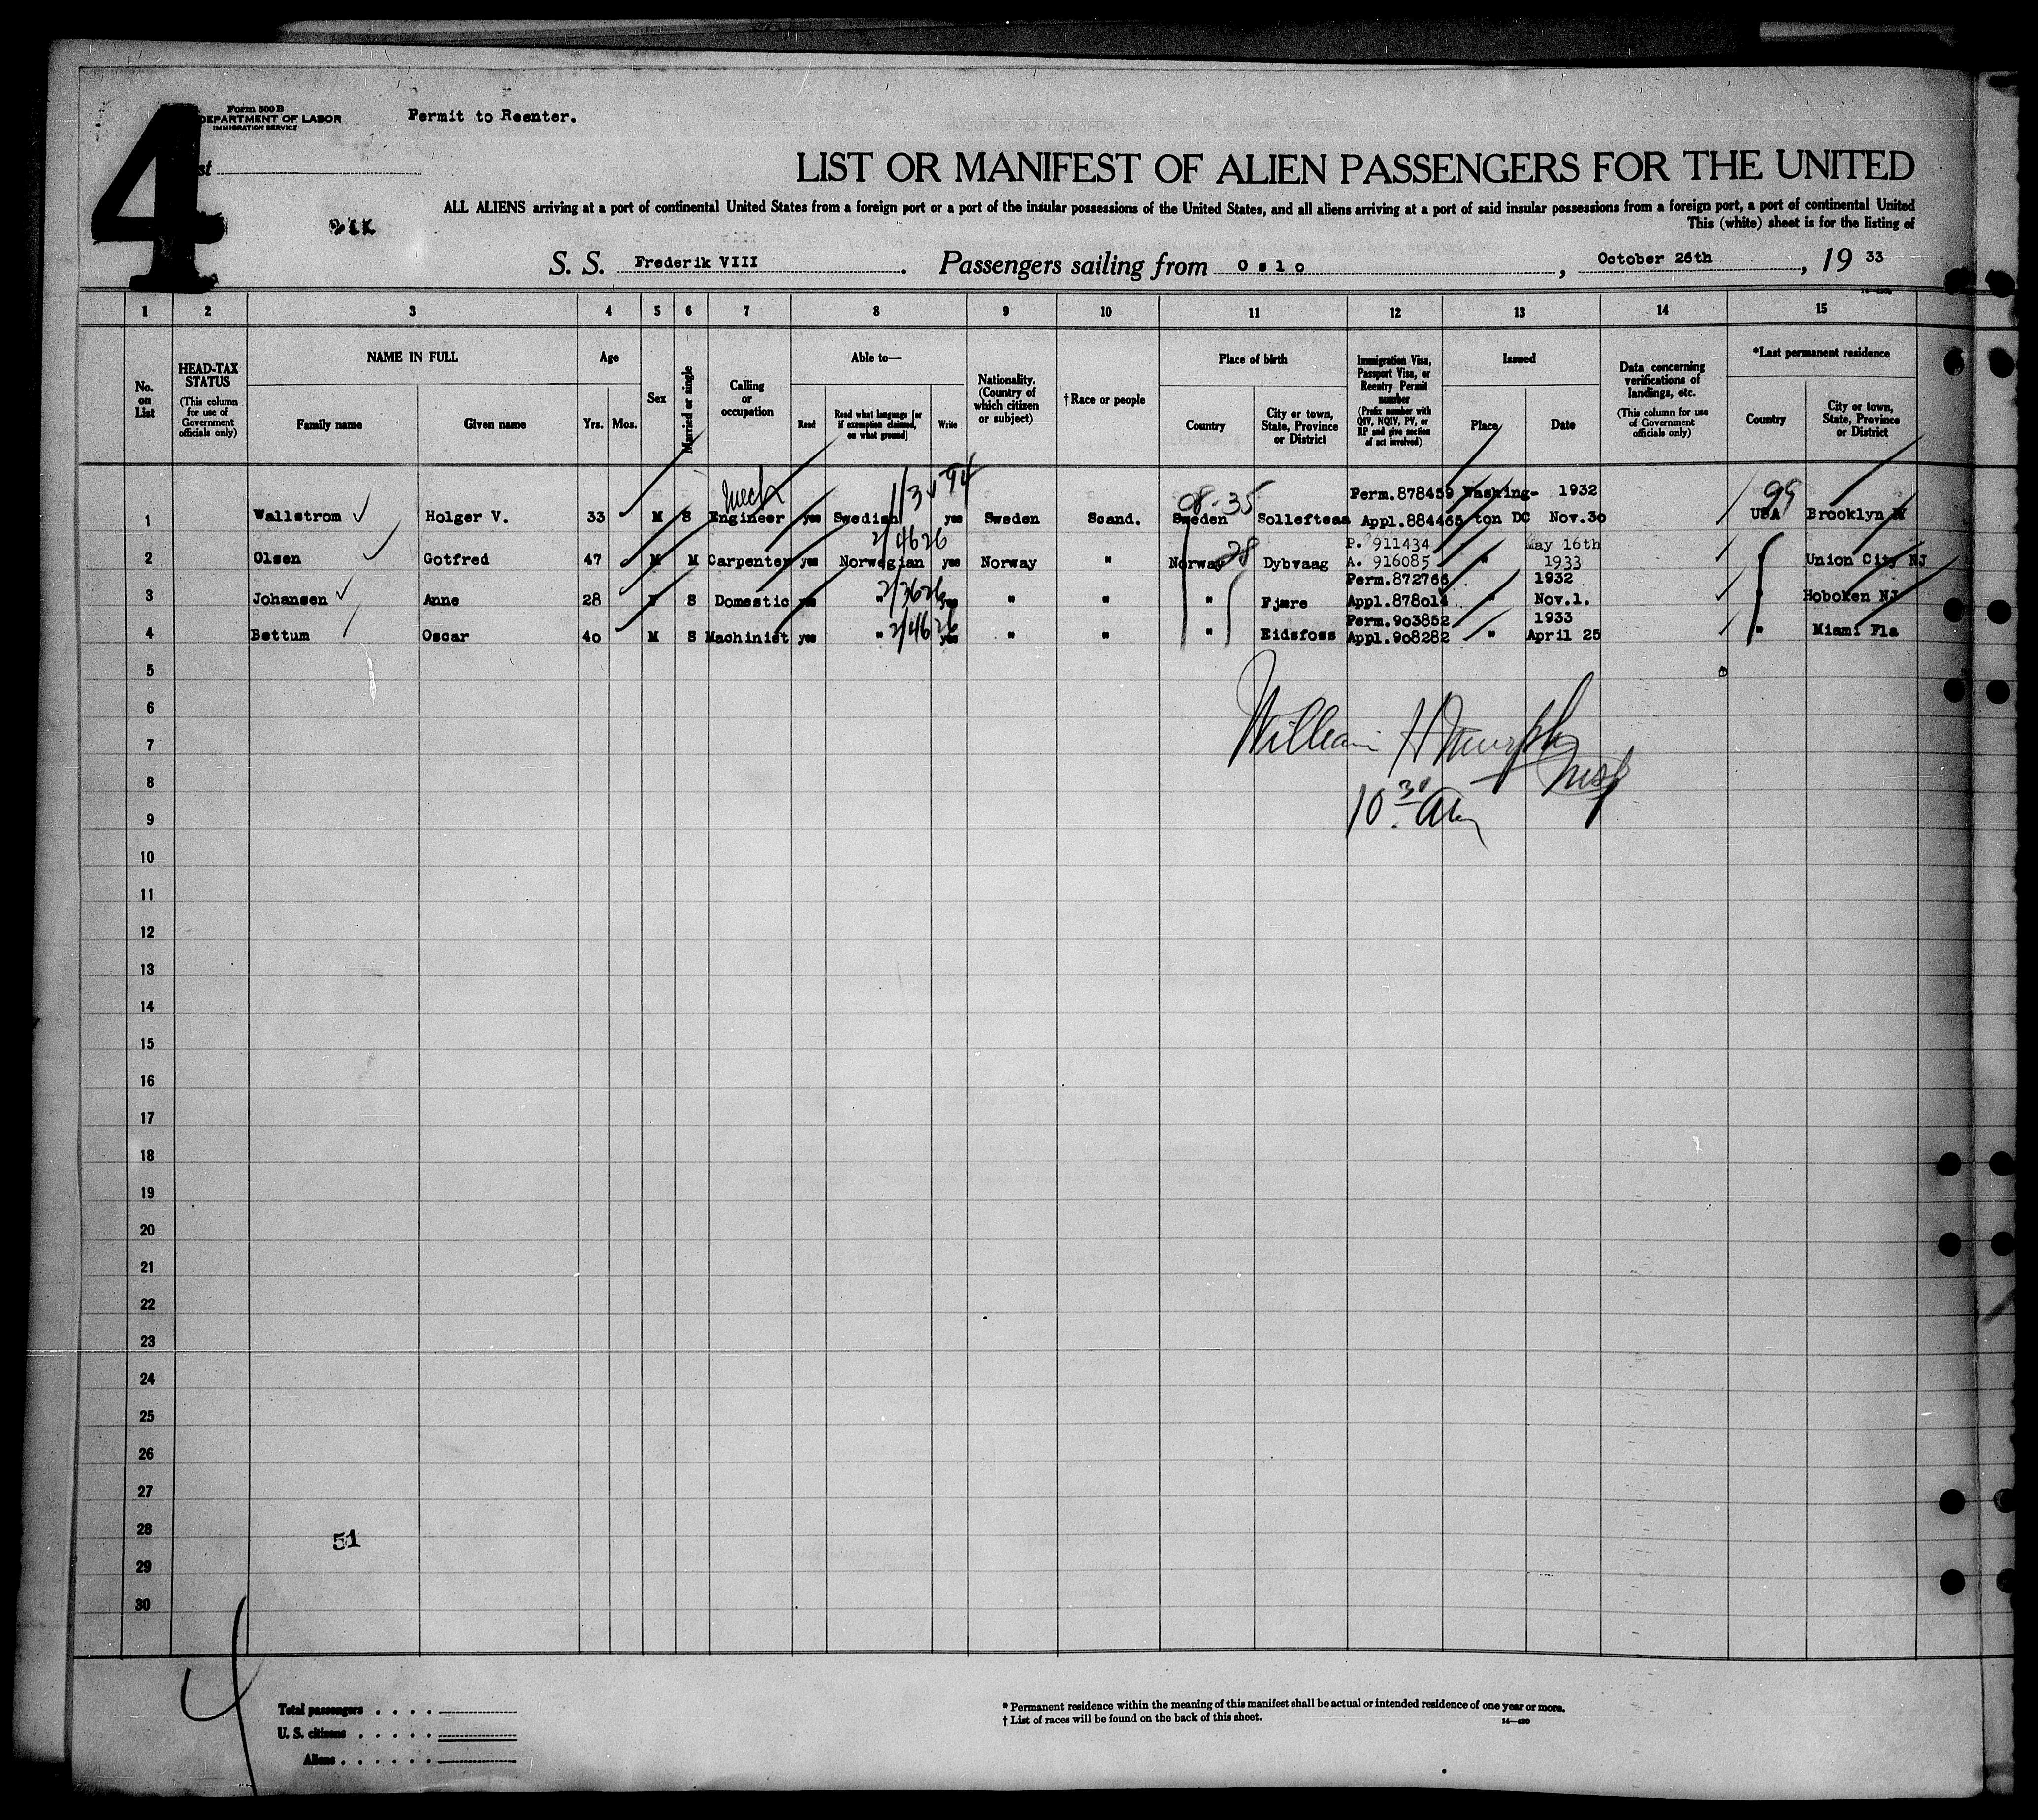 4
Form 500 B
DEPARTMENT OF LABOR
IMMIGRATION SERVICE
Permit to Reenter.
st
LIST OR MANIFEST OF ALIEN PASSENGERS FOR THE UNITED
ALL ALIENS arriving at a port of continental United States from a foreign port or a port of the insular possessions of the United States, and all aliens arriving at a port of said insular possessions from a foreign port, a port of continental United
This (white) sheet is for the listing of
S. S. Frederik VIII. Passengers sailing from Oslo, October 26th, 19 33
1 2 3 4 5 6 7 8 9 10 11 12 13 14 15
No. on List
HEAD-TAX STATUS (This column for use of Government officials only)
NAME IN FULL Family name Given name
Age Yrs. Mos.
Sex
Married or single
Calling or occupation
Able to— Read Read what language [or if exemption claimed, on what ground] Write
Nationality. (Country of which citizen or subject)
†Race or people
Place of birth Country City or town, State, Province or District
Immigration Visa, Passport Visa, or Reentry Permit number (Prefix number with QIV, NQIV, PV, or RP and give section of act involved)
Issued Place Date
Data concerning verifications of landings, etc. (This column for use of Government officials only)
*Last permanent residence Country City or town, State, Province or District
Mech 1/3 v 94 08-35 Perm.878459 Washing- 1932 99
1 Wallstrom Holger V. 33 M S Engineer yes Swedish yes Sweden Scand. Sweden Solleftea Appl.884465 ton DC Nov.30 USA Brooklyn
2/46 26 28 P. 911434 May 16th
2 Olsen Gotfred 47 M M Carpenter yes Norwegian yes Norway " Norway Dybvaag A. 916085 " 1933 " Union City NJ
2/36 26 Perm.872766 1932
3 Johansen Anne 28 F S Domestic yes " yes " " " Fjære Appl.878014 " Nov.1. " Hoboken NJ
2/46 26 Perm.903852 1933
4 Bettum Oscar 40 M S Machinist yes " yes " " " Eidsfoss Appl.908282 " April 25 " Miami Fla
5
6
7 William H Murphy
8 Insp
9 10 30 AM
10
11
12
13
14
15
16
17
18
19
20
21
22
23
24
25
26
27
28 51
29
30
4
Total passengers
U. S. citizens
Aliens
* Permanent residence within the meaning of this manifest shall be actual or intended residence of one year or more.
† List of races will be found on the back of this sheet.
14—430